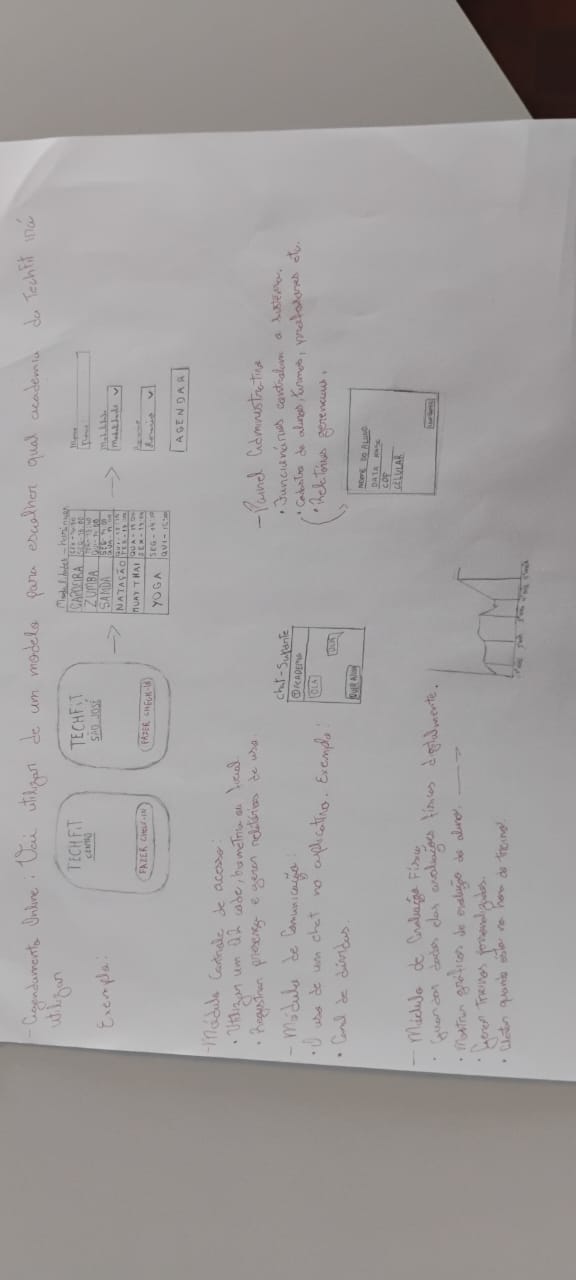 - Agendamento Online: Vai utilizar de um modelo para escolher qual academia da TechFit irá
utilizar
Exemplo:
TECHFIT
CENTRO
FAZER CHECK-IN
TECHFIT
SÃO JOSÉ
FAZER CHECK-IN
Modalidades - horários
CAPOEIRA
ZUMBA
SAMBA
NATAÇÃO
MUAY THAI
YOGA
SEG - 14:00
Nome
Nome
Modalidade
Modalidade
Horário
AGENDAR
- Módulo Controle de acesso:
• Utilizar um QR code, biometria ou facial.
• Registrar presença e gerar relatórios de uso.
- Módulo de Comunicação:
• O uso de um chat no aplicativo. Exemplo:
• Canal de dúvidas.
Chat-Suporte
ACADEMIA
OLÁ
OLÁ
- Painel Administrativo
• Funcionários controlam o sistema.
• Cadastro de alunos, turmas, professores etc.
• Relatórios gerenciais.
NOME DO ALUNO
DATA NASC
CPF
CELULAR
- Módulo de Avaliação Física
• Guardar dados das avaliações físicas digitalmente.
• Mostrar gráficos de evolução do aluno.
• Gerar treinos personalizados.
• Alertar quando está na hora do treino.